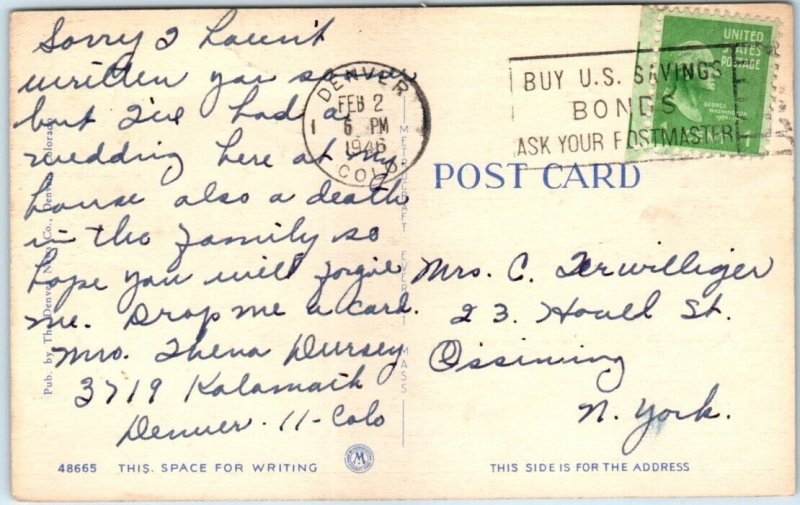 Sorry I haven't
written you sooner
but I've had a
wedding here at my
house also a death
in the family so
hope you will forgive
me. Drop me a card.
Mrs. Thena Dursey
3719 Kalamath
Denver-11-Colo
DENVER
FEB 2
6 PM
1946
COLO
1
BUY U.S. SAVINGS
BONDS
ASK YOUR POSTMASTER
UNITED
STATES
POSTAGE
GEORGE
WASHINGTON
POST CARD
Mrs. C. Terwilliger
23. Houll St.
Ossining
N. York.
Pub. by The Denver News Co., Denver, Colorado
METROCRAFT EVERETT MASS
48665 THIS SPACE FOR WRITING
THIS SIDE IS FOR THE ADDRESS